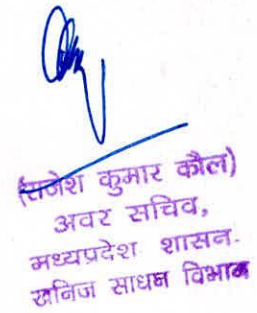 (राजेश कुमार कौल)
अवर सचिव,
मध्यप्रदेश शासन.
खनिज साधन विभाग